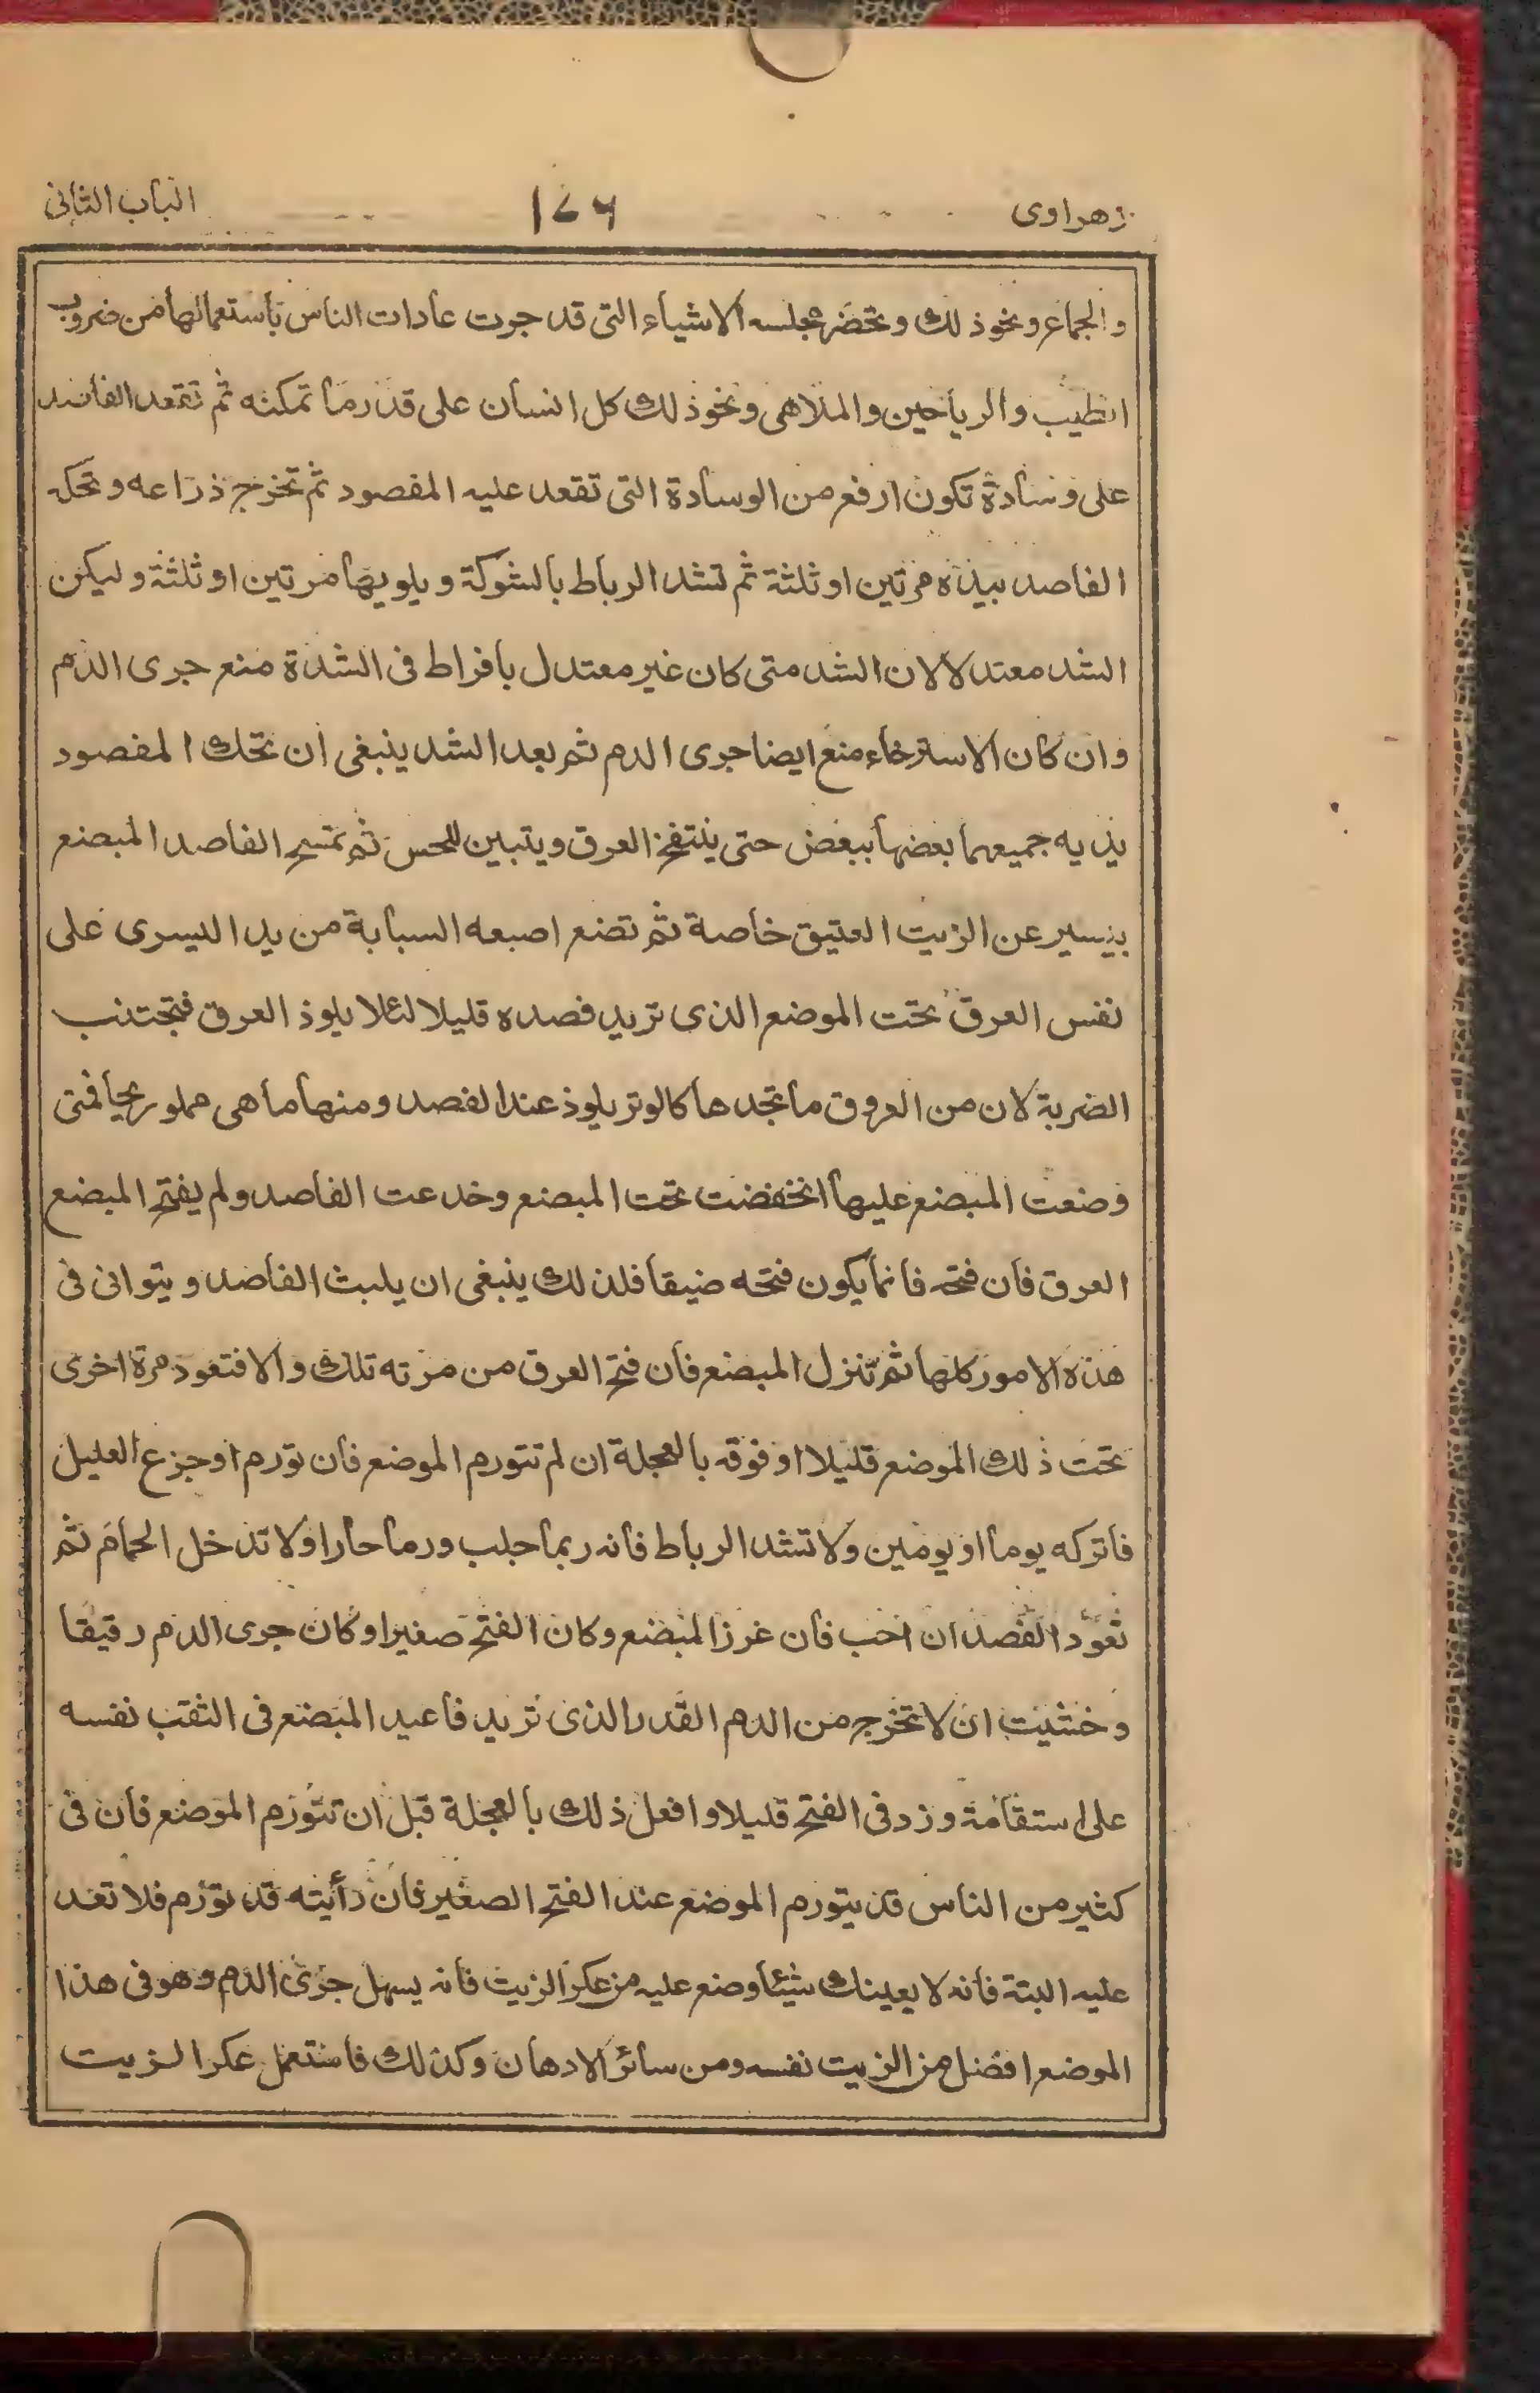 زهراوى ١٤٦ الباب الثانى
والجماع ونحو ذلك وتحضر مجلسه الاشياء التى قد جرت عادات الناس باستعمالها من ضروب
الطيب والرياحين والملاهى ونحو ذلك كل انسان على قدر ما تمكنه ثم تقعد الفاصد
على وسادة تكون ارفع من الوسادة التى تقعد عليه المفصود ثم تخرج ذراعه وتحكه
الفاصد بيده مرتين او ثلثة ثم تشد الرباط بالشوكة ويلويها مرتين او ثلثة وليكن
الشد معتدلا لان الشد متى كان غير معتدل بافراط فى الشدة منع جرى الدم
وان كان الاسترخاء منع ايضا جرى الدم ثم بعد الشد ينبغى ان تحك المفصود
يديه جميعهما بعضها ببعض حتى ينتفخ العرق ويتبين للحس ثم تمسح الفاصد المبضع
بيسير عن الزيت العتيق خاصة ثم تضع اصبعه السبابة من يد اليسرى على
نفس العرق تحت الموضع الذى تريد فصده قليلا لئلا يلوذ العرق فتجتنب
الضربة لان من العروق ما تجدها كالوتر يلوذ عند الفصد ومنها ما هى مملو ريحا فمتى
وضعت المبضع عليها انخفضت تحت المبضع وخدعت الفاصد ولم يفتح المبضع
العرق فان فتحه فانما يكون فتحه ضيقا فلذلك ينبغى ان يلبث الفاصد ويتوانى فى
هذه الامور كلها ثم تنزل المبضع فان فتح العرق من مرته تلك والا فتعود مرة اخرى
تحت ذلك الموضع قليلا او فوقه بالعجلة ان لم تتورم الموضع فان تورم او جزع العليل
فاتركه يوما او يومين ولا تشد الرباط فانه ربما جلب ورما حارا ولا تدخل الحمام ثم
تعود الفصد ان احب فان غرز المبضع وكان الفتح صغيرا وكان جرى الدم رقيقا
وخشيت ان لا تخرج من الدم القدر الذى تريد فاعيد المبضع فى الثقب نفسه
على استقامة وزد فى الفتح قليلا وافعل ذلك بالعجلة قبل ان تتورم الموضع فان فى
كثير من الناس قد يتورم الموضع عند الفتح الصغير فان رأيته قد تورم فلا تعد
عليه البتة فانه لا يعينك شيئا وضع عليه من عكر الزيت فانه يسهل جرى الدم وهو فى هذا
الموضع افضل من الزيت نفسه ومن سائر الادهان وكذلك فاستعمل عكر الزيت